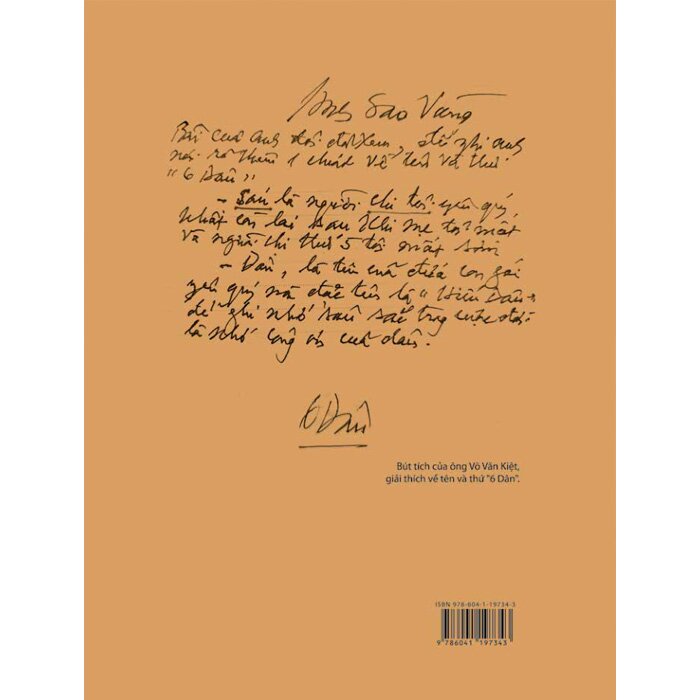 Anh Sao Vàng
Bài của anh tôi đã xem, đề nghị anh
nói rõ thêm 1 chút về tên và thứ
"6 Dân"
- Sáu là người chị tôi yêu quý
nhất còn lại sau khi mẹ tôi mất
và người chị thứ 5 tôi mất sớm
- Dân, là tên của đứa con gái
yêu quý mà đặt tên là "Hiếu Dân"
để ghi nhớ sâu sắc trong cuộc đời
là nhớ công ơn của dân.
6 Dân
Bút tích của ông Võ Văn Kiệt,
giải thích về tên và thứ "6 Dân".
ISBN 978-604-1-19734-3
9 786041 197343